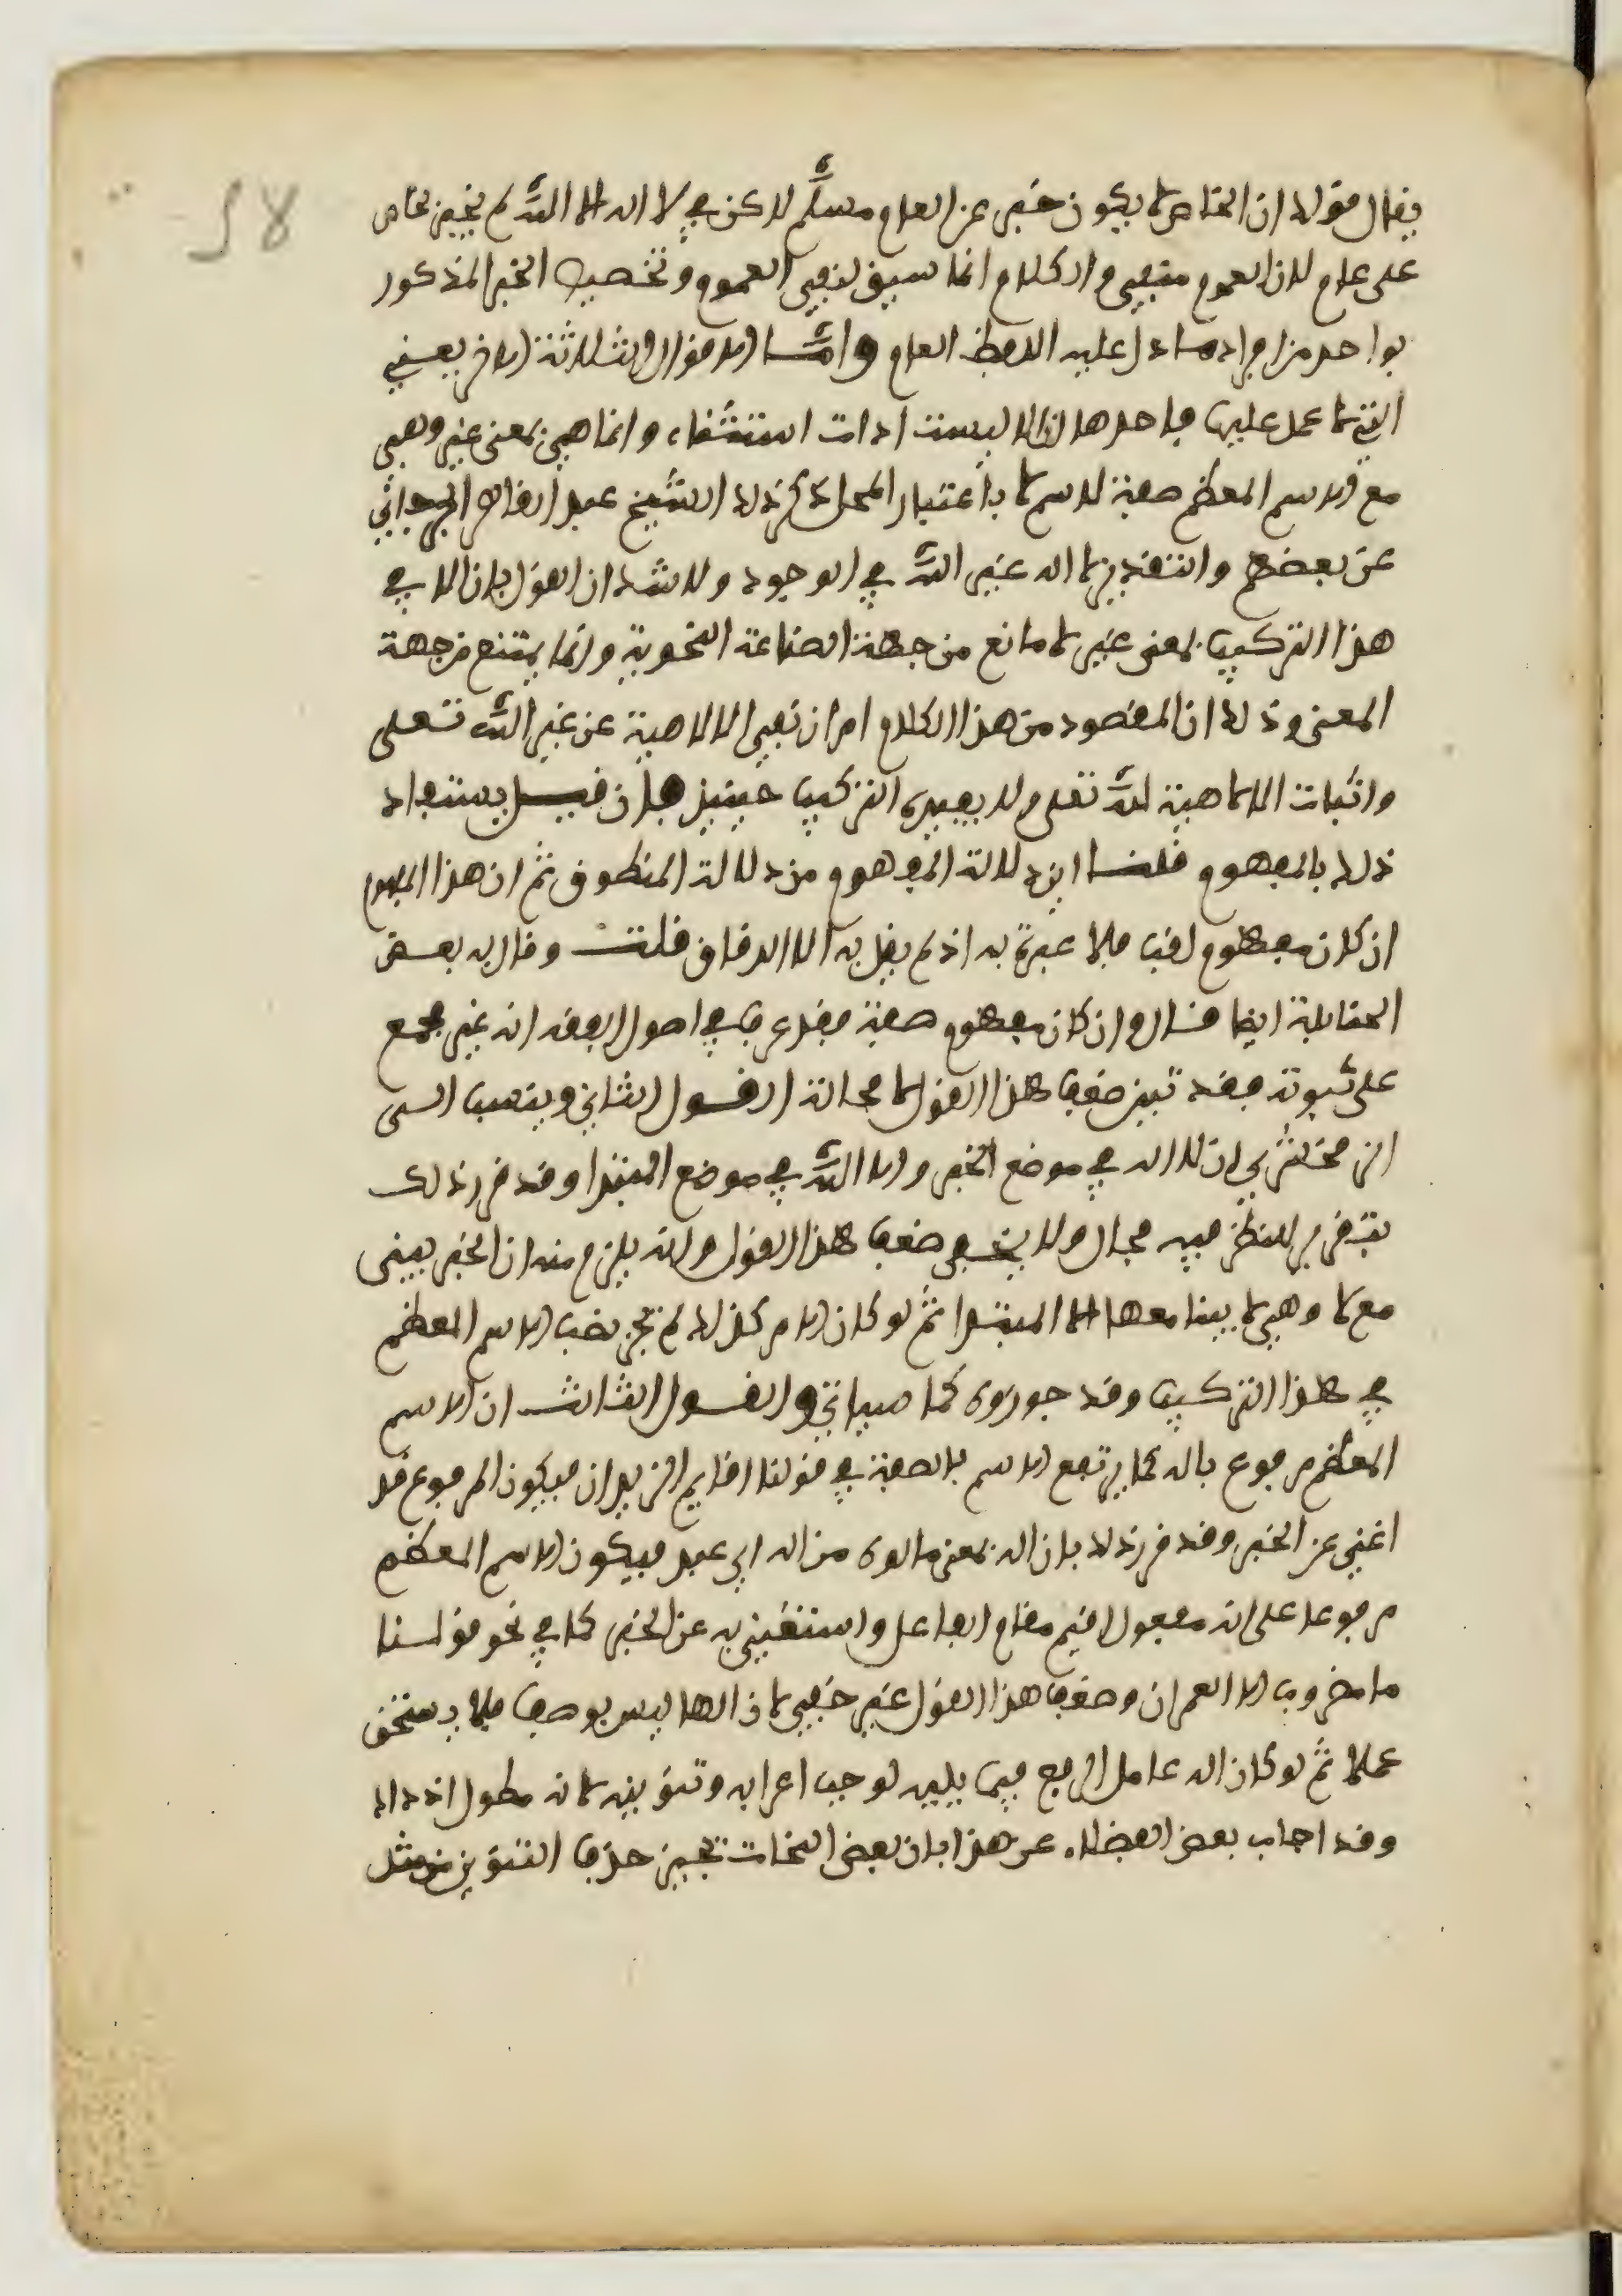 يقال قولك ان الخاص لا يكون خبرا عن العام مسلّم لاكن في لا اله الا اللّه لم يخبر بخاص
على عام لان العموم منفي والكلام انما سيق لنفي العموم وتخصيص الخبر المذكور
بواحد من افراد ما دل عليه اللفظ العام وامّا الاقوال الثلاثة الاخر يعني
التي لا عمل عليها فاحدها ان الا ليست ادات استثناء وانما هي بمعنى غير وهي
مع الاسم المعظم صفة لاسم لا باعتبار المحل ذكر ذلك الشيخ عبد القاهر الجرجاني
عن بعضهم والتقدير لا اله غير اللّه في الوجود ولا شك ان القول بان الا في
هذا التركيب بمعنى غير لا مانع من جهة الصناعة النحوية وانما يمتنع من جهة
المعنى وذلك ان المقصود من هذا الكلام امران نفي الالاهية عن غير اللّه تعلى
واثبات الالاهية للّه تعلى ولا يفيده التركيب حينئذ فان قيل يستفاد
ذلك بالمفهوم قلنا اين دلالة المفهوم من دلالة المنطوق ثم ان هذا المفهوم
ان كان مفهوم لقب فلا عبرة به اذ لم يقل به الا الدقاق قلت وقال به بعض
الحنابلة ايضا قال وان كان مفهوم صفة فقد عرف في اصول الفقه انه غير مجمع
على ثبوته فقد تبين ضعف هذا القول لا محالة القول الثاني وينسب الى
الزمخشري ان لا اله في موضع الخبر والا اللّه في موضع المبتدا وقد قرر ذلك
بتقرير للنظر فيه مجال ولا يخفى ضعف هذا القول وانه يلزم منه ان الخبر يبنى
مع لا وهي لا يبنا معها الا المبتدا ثمّ لو كان الامر كذلك لم يجز نصب الاسم المعظم
في هذا التركيب وقد جوزوه كما سياتي والقول الثالث ان الاسم
المعظم مرفوع باله كما يرتفع الاسم بالصفة في قولنا اقايم الزيدان فيكون المرفوع قد
اغنى عن الخبر وقد قرر ذلك بان اله بمعنى مالوه من اله اي عبد فيكون الاسم المعظم
مرفوعا على انه مفعول اقيم مقام الفاعل واستغني به عن الخبر كما في نحو قولنا
ما مضروب الا العمران وضعف هذا القول غير خفي لان الها ليس بوصف فلا يستحق
عملا ثمّ لو كان اله عامل الرفع فيما يليه لوجب اعرابه وتنوينه لانه مطول اذ ذاك
وقد اجاب بعض الفضلاء عن هذا بان بعض النحات تجيز حذف التنوين من مثل